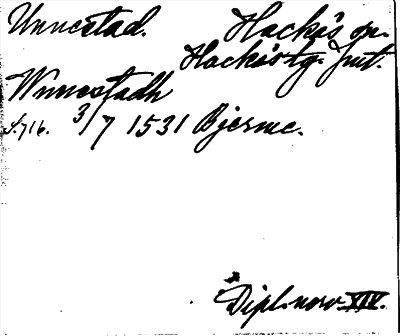 Unnestad. Hackås sn.
Hackås tg. Jmt.
Wnnestadh
s. 716. 3/7 1531 Bjerme.
Dipl. norv. XIV.